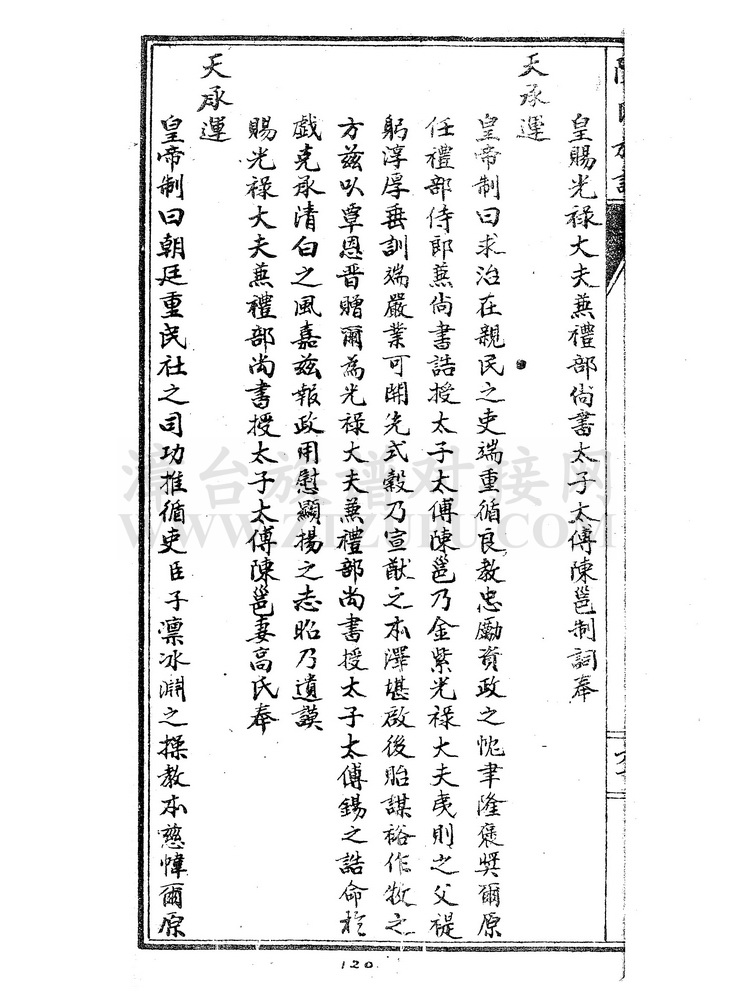 皇賜光祿大夫兼禮部尚書太子太傅陳邕制詞奉
天承運
皇帝制曰求治在親民之吏端重循良教忠勵資政之忱聿隆褒獎爾原
任禮部侍郎兼尚書誥授太子太傅陳邕乃金紫光祿大夫夷則之父禔
躬淳厚垂訓端嚴業可開先式穀乃宣猷之本澤堪啟後貽謀裕作牧之
方茲以覃恩晋贈爾為光祿大夫兼禮部尚書授太子太傅錫之誥命於
戲克承清白之風嘉茲報政用慰顯揚之志昭乃遺謨
賜光祿大夫兼禮部尚書授太子太傅陳邕妻高氏奉
天承運
皇帝制曰朝廷重民社之司功推循吏臣子凛冰淵之操教本慈幃爾原
120
漳台族谱对接网
WWW.ZTZUPU.COM